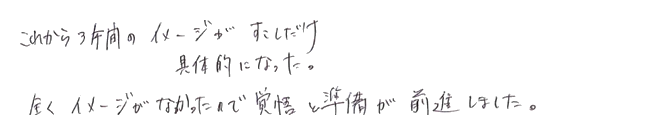 これから3年間の イメージが すこしだけ
具体的になった。
全く イメージがなかったので 覚悟と準備が 前進しました。